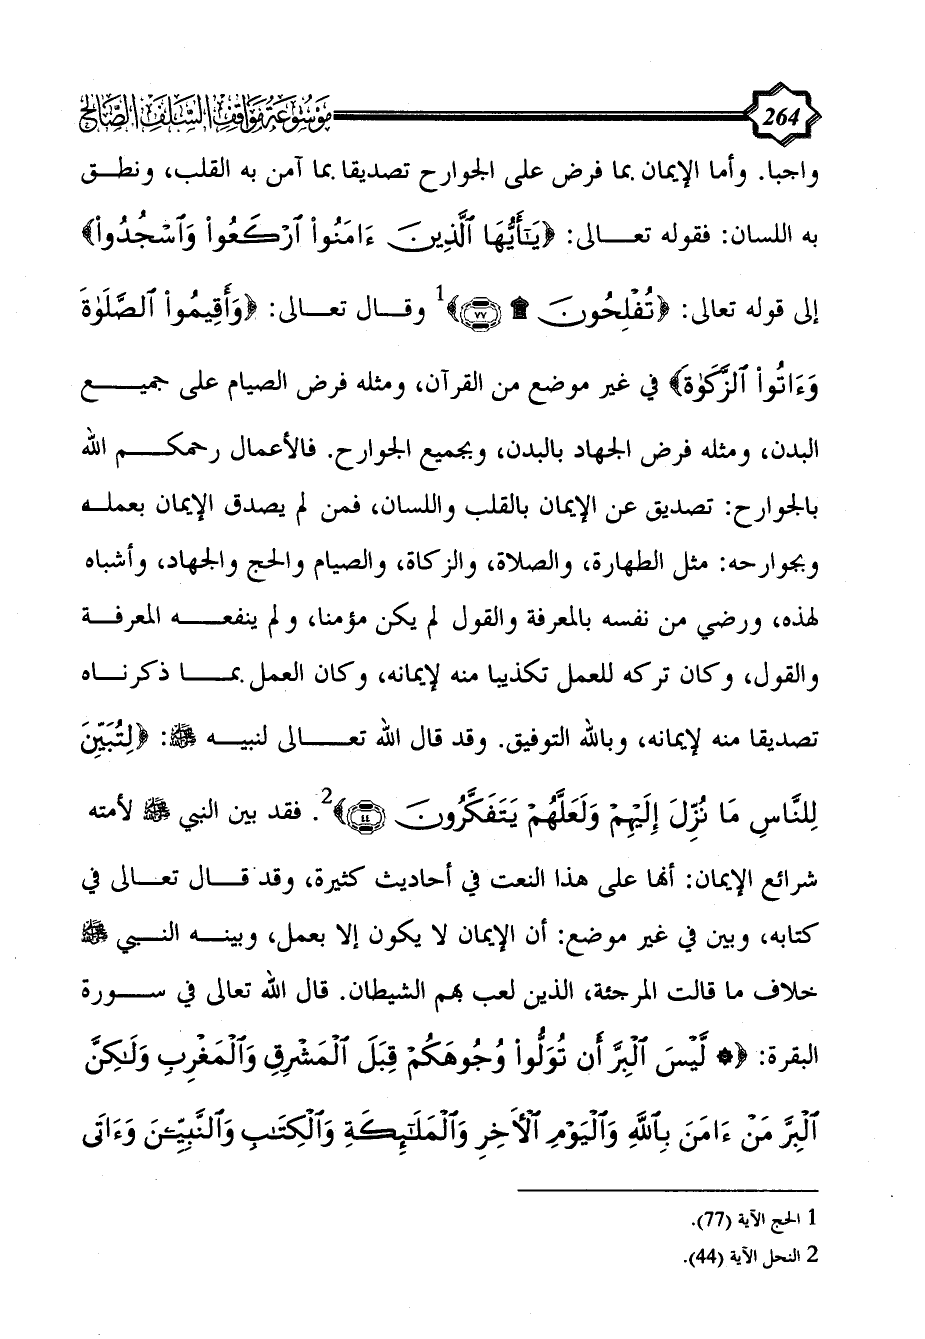 264 موسوعة مواقف السلف الصالح
واجبا. وأما الإيمان بما فرض على الجوارح تصديقا بما آمن به القلب، ونطق
به اللسان: فقوله تعالى: ﴿يَٰٓأَيُّهَا ٱلَّذِينَ ءَامَنُواْ ٱرْكَعُواْ وَٱسْجُدُواْ﴾
إلى قوله تعالى: ﴿تُفْلِحُونَ ۩ ٧٧﴾1 وقال تعالى: ﴿وَأَقِيمُواْ ٱلصَّلَوٰةَ
وَءَاتُواْ ٱلزَّكَوٰةَ﴾ في غير موضع من القرآن، ومثله فرض الصيام على جميع
البدن، ومثله فرض الجهاد بالبدن، وبجميع الجوارح. فالأعمال رحمكم الله
بالجوارح: تصديق عن الإيمان بالقلب واللسان، فمن لم يصدق الإيمان بعمله
وبجوارحه: مثل الطهارة، والصلاة، والزكاة، والصيام والحج والجهاد، وأشباه
لهذه، ورضي من نفسه بالمعرفة والقول لم يكن مؤمنا، ولم ينفعه المعرفة
والقول، وكان تركه للعمل تكذيبا منه لإيمانه، وكان العمل بما ذكرناه
تصديقا منه لإيمانه، وبالله التوفيق. وقد قال الله تعالى لنبيه ﷺ: ﴿لِتُبَيِّنَ
لِلنَّاسِ مَا نُزِّلَ إِلَيْهِمْ وَلَعَلَّهُمْ يَتَفَكَّرُونَ ٤٤﴾2. فقد بين النبي ﷺ لأمته
شرائع الإيمان: أنها على هذا النعت في أحاديث كثيرة، وقد قال تعالى في
كتابه، وبين في غير موضع: أن الإيمان لا يكون إلا بعمل، وبينه النبي ﷺ
خلاف ما قالت المرجئة، الذين لعب بهم الشيطان. قال الله تعالى في سورة
البقرة: ﴿۞ لَّيْسَ ٱلْبِرَّ أَن تُوَلُّواْ وُجُوهَكُمْ قِبَلَ ٱلْمَشْرِقِ وَٱلْمَغْرِبِ وَلَٰكِنَّ
ٱلْبِرَّ مَنْ ءَامَنَ بِٱللَّهِ وَٱلْيَوْمِ ٱلْأَخِرِ وَٱلْمَلَٰٓئِكَةِ وَٱلْكِتَٰبِ وَٱلنَّبِيِّۦنَ وَءَاتَى
1 الحج الآية (77).
2 النحل الآية (44).